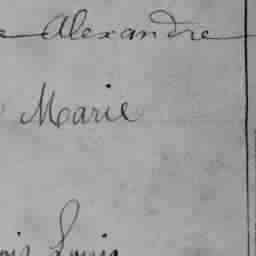 Alexandre
Marie
Louis